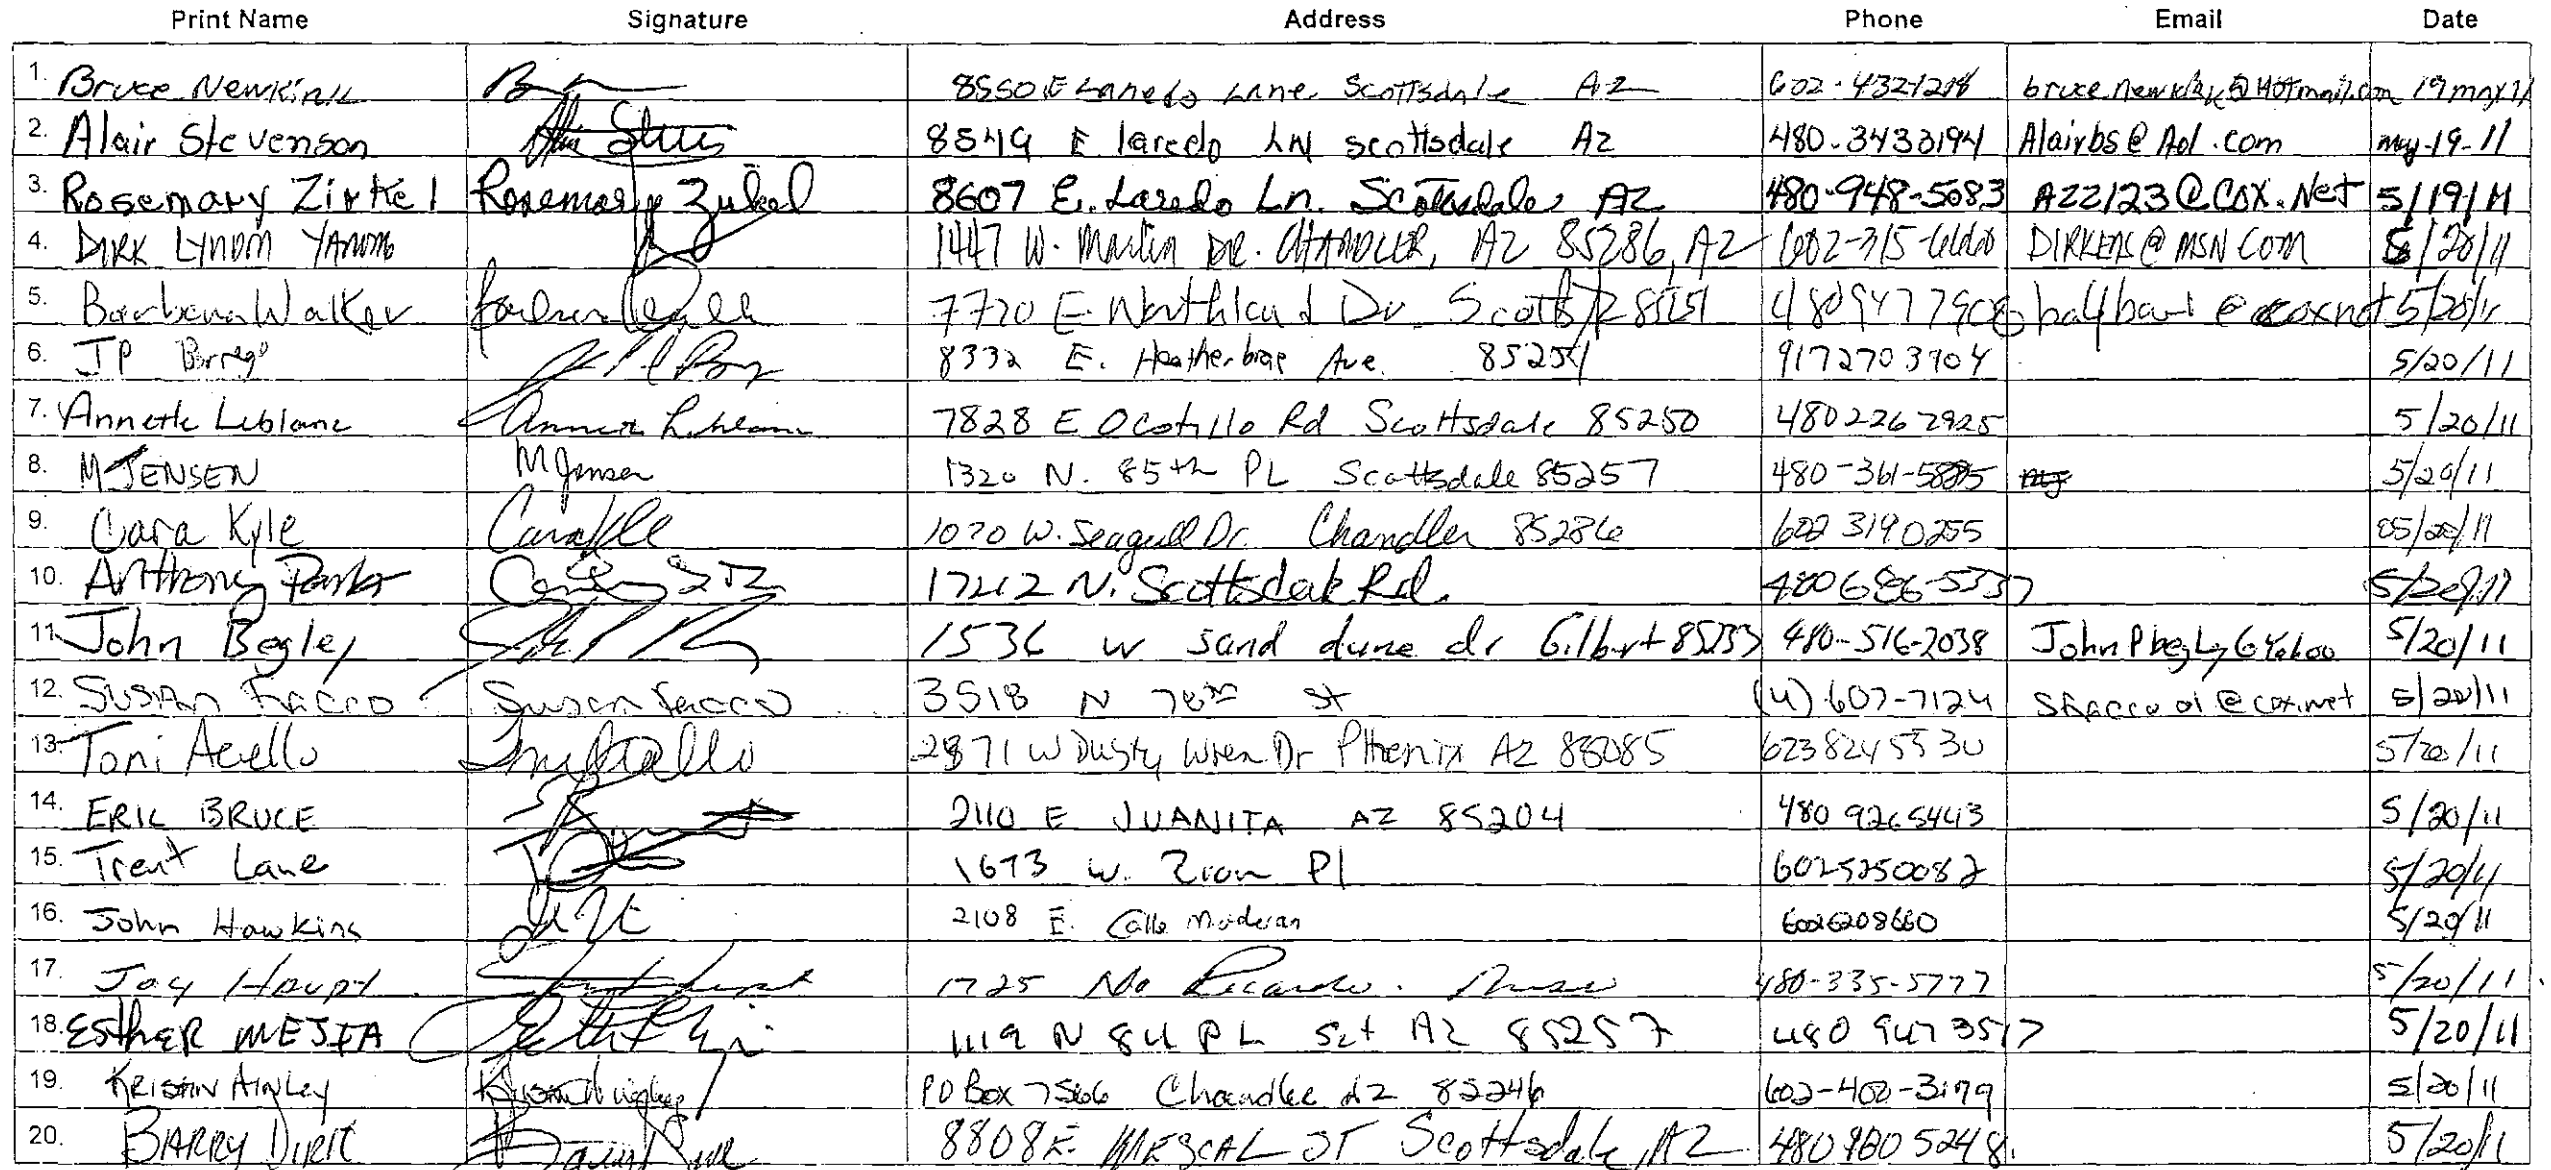 Print Name Signature Address Phone Email Date
1. Bruce Newkirk 8550 E Laredo Lane Scottsdale AZ 602-432-1218 19 may 11
2. Alair Stevenson 8549 E laredo LN scottsdale Az 480-3433194 Alairbs@Aol.com may-19-11
3. Rosemary Zirkel Rosemary Zirkel 8607 E. Laredo Ln. Scottsdale, AZ 480-948-5083 AZZ123@COX.Net 5/19/11
4. DIRK 1447 W. Martin DR. CHANDLER, AZ 85286, AZ 5/20/11
5. Barbara Walker 7720 E Northland Dr Scotts 5/20/11
6. JP Borrego 8332 E. Heatherbrae Ave. 85251 9172703904 5/20/11
7. Annette Leblanc Annette Leblanc 7828 E Ocotillo Rd Scottsdale 85250 4802262925 5/20/11
8. M JENSEN M Jensen 1320 N. 85th PL Scottsdale 85257 5/20/11
9. Cara Kyle Cara Kyle 1070 W. Seagull Dr. Chandler 85286 602 3190255 05/20/11
10. Anthony 17212 N. Scottsdale Rd. 480 686-5337 5/20/11
11. John Begley 1536 w sand dune dr Gilbert 85233 480-516-2038 5/20/11
12. SUSAN Susan 3518 N 78th St (4) 607-7124 5/20/11
13. Toni Acello 2871 W Dusty Wren Dr Phoenix AZ 85085 6238245530 5/20/11
14. ERIC BRUCE 2110 E JUANITA AZ 85204 480 9265443 5/20/11
15. Trent Lane 1673 W. Zion Pl 6025250082 5/20/11
16. John Hawkins 2108 E. Calle Maderas 6026208660 5/20/11
17. Jay Haupt 1725 No Ricardo. Mesa 480-335-5777 5/20/11
18. ESTHER MEJIA 1119 N 84 PL Sct AZ 85257 480 947 3517 5/20/11
19. KRISTIN AINLEY PO Box 7566 Chandler AZ 85246 5/20/11
20. BARRY 8808 E. MESCAL ST Scottsdale, AZ 480 980 5248 5/20/11